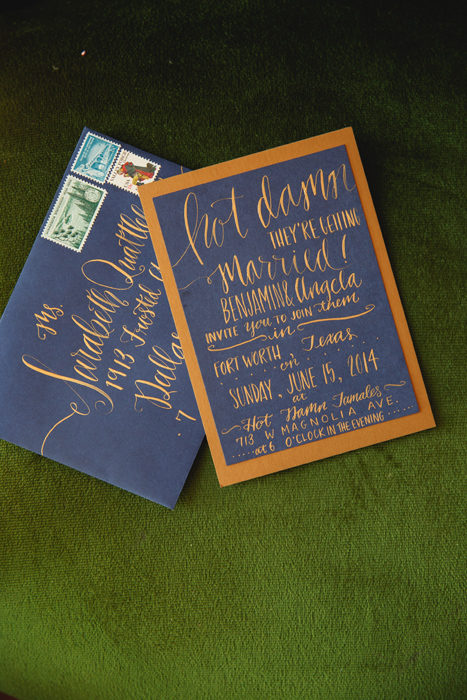 Ms.
Sarabeth Quattle
1913 Frosted
Dallas
7
hot damn
THEY'RE GETTING
married!
BENJAMIN & Angela
INVITE YOU TO JOIN them
in
FORT WORTH, Texas
on
SUNDAY, JUNE 15, 2014
at
Hot Damn Tamales
713 W MAGNOLIA AVE.
at 6 O'CLOCK IN THE EVENING